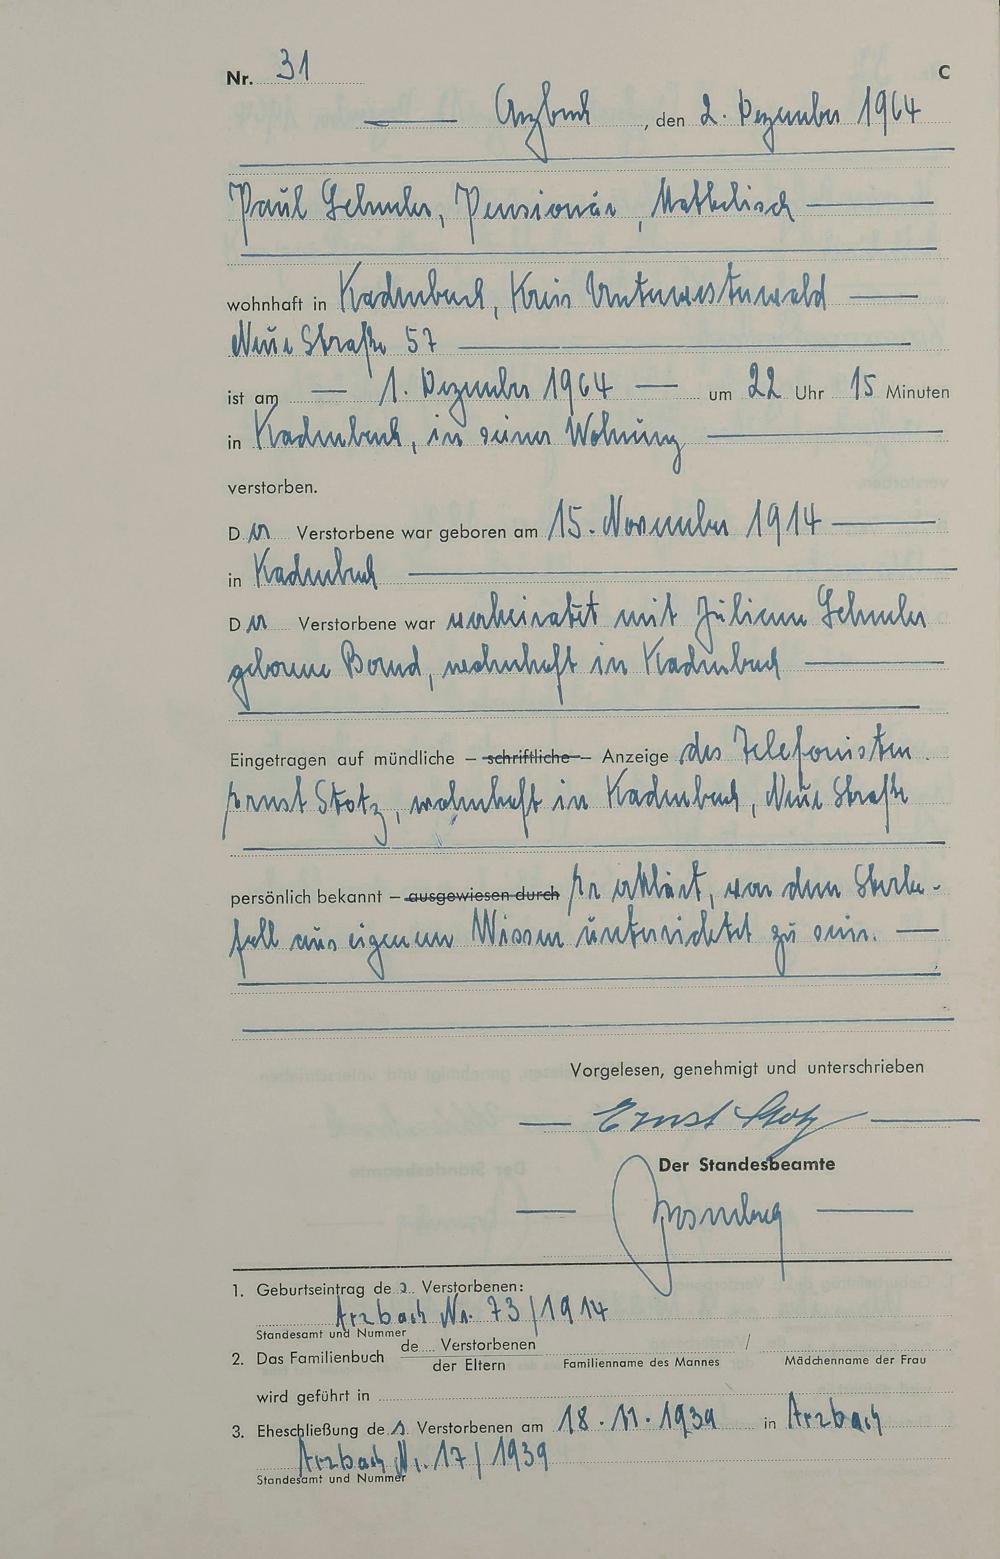 Nr. 31 C
Arzbach, den 2. Dezember 1964
Paul Gehmler, Pensionär, katholisch
wohnhaft in Kadenbach, Kreis Unterwesterwald
Neue Straße 57
ist am 1. Dezember 1964 um 22 Uhr 15 Minuten
in Kadenbach, in seiner Wohnung
verstorben.
Der Verstorbene war geboren am 15. November 1914
in Kadenbach
Der Verstorbene war verheiratet mit Juliane
geborene wohnhaft in Kadenbach
Eingetragen auf mündliche – schriftliche – Anzeige des Telefonisten
Ernst Stotz, wohnhaft in Kadenbach, Neue Straße
persönlich bekannt – ausgewiesen durch Er erklärt, von dem Sterbe-
fall aus eigenem Wissen unterrichtet zu sein.
Vorgelesen, genehmigt und unterschrieben
Ernst Stotz
Der Standesbeamte
1. Geburtseintrag des Verstorbenen:
Arzbach Nr. 73/1914
Standesamt und Nummer
2. Das Familienbuch de Verstorbenen / der Eltern /
Familienname des Mannes Mädchenname der Frau
wird geführt in
3. Eheschließung des Verstorbenen am 18.11.1939 in Arzbach
Arzbach Nr. 17/1939
Standesamt und Nummer